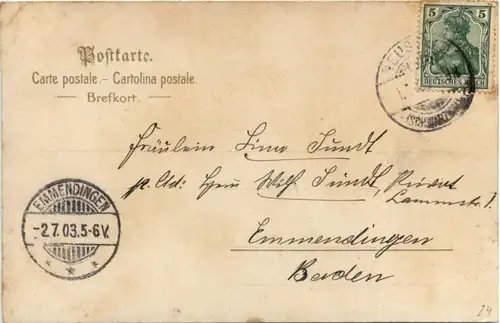 Postkarte.
Carte postale.- Cartolina postale.
Brefkort.
5 5
DEUTSCHES REICH
NEUST
(SCHWARZW
Fräulein Lina Jundt
p. Adr: Herrn Wilh. Jundt, Privat
Lammstr.
Emmendingen
Baden
EMMENDINGEN
-2.7.03.5-6V.
24